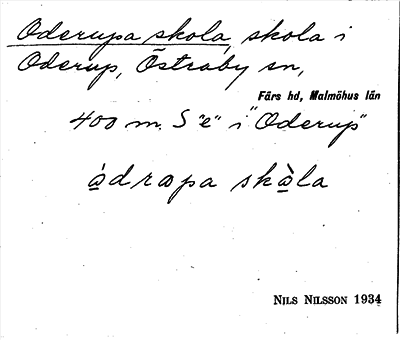 Oderupa skola, skola i
Oderup, Östraby sn,
Färs hd, Malmöhus län
400 m. S "e" i "Oderup"
à̱drɷpa skà̱la
NILS NILSSON 1934